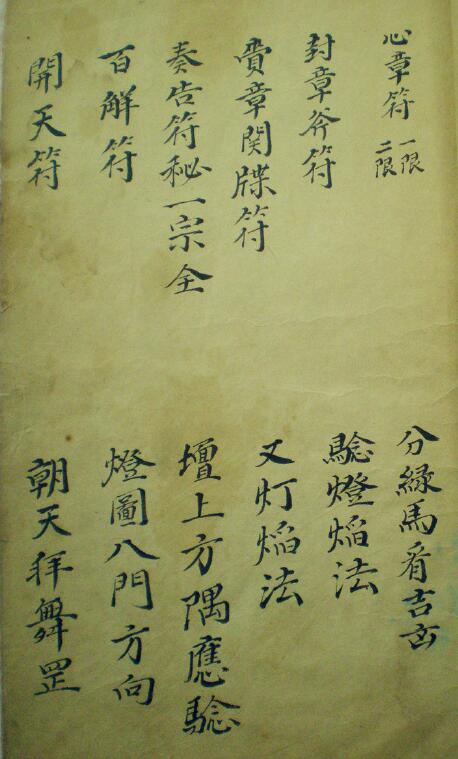 心章符 一限 二限
封章斧符
賫章関牒符
奏告符秘一宗全
百解符
開天符
分緑馬看吉㐫
騐燈焰法
又灯焰法
壇上方隅應騐
燈圖八門方向
朝天拜舞罡